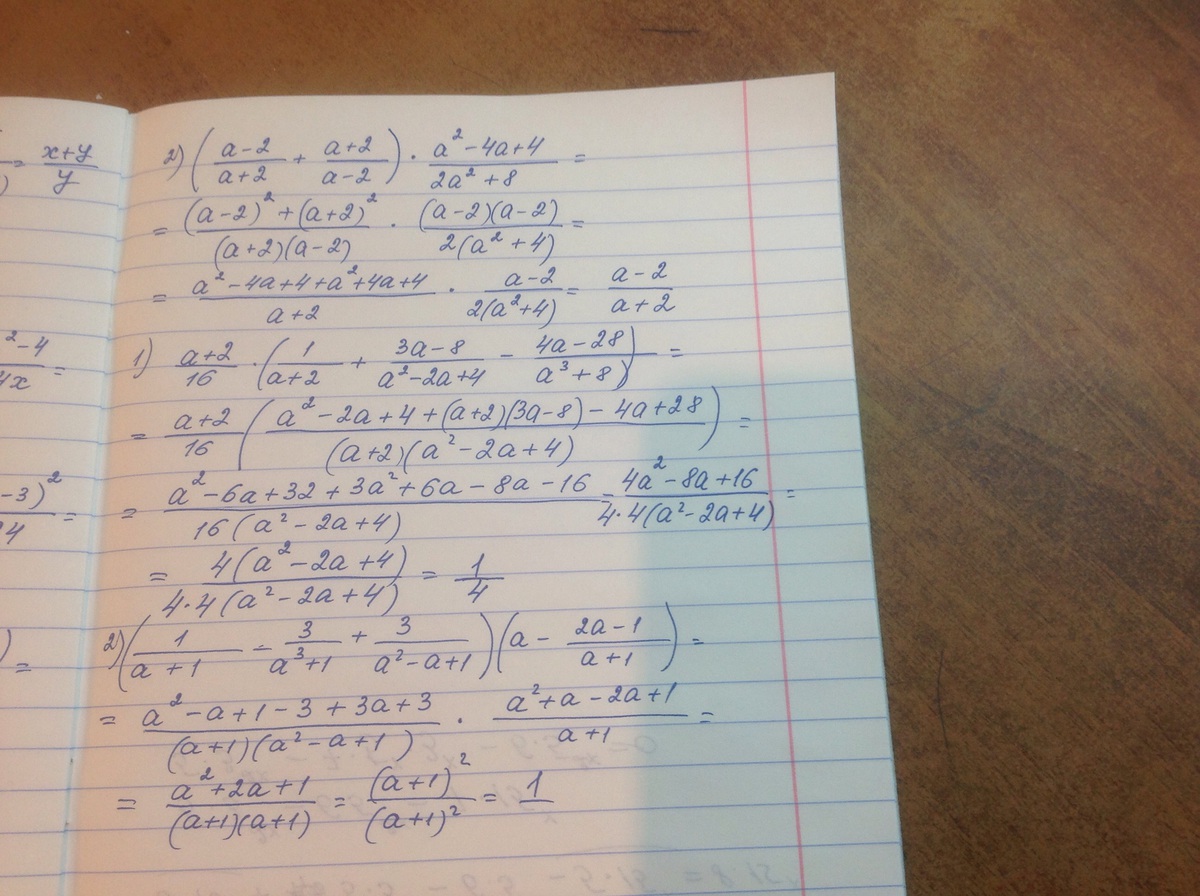 = x+y/y
2) (a-2/a+2 + a+2/a-2) · a²-4a+4/2a²+8 =
= (a-2)²+(a+2)²/(a+2)(a-2) · (a-2)(a-2)/2(a²+4) =
= a²-4a+4+a²+4a+4/a+2 · a-2/2(a²+4) = a-2/a+2
²-4/4x =
1) a+2/16 · (1/a+2 + 3a-8/a²-2a+4 - 4a-28/a³+8) =
= a+2/16 (a²-2a+4+(a+2)(3a-8)-4a+28/(a+2)(a²-2a+4)) =
-3)²/24 =
= a²-6a+32+3a²+6a-8a-16/16(a²-2a+4) = 4a²-8a+16/4·4(a²-2a+4) =
= 4(a²-2a+4)/4·4(a²-2a+4) = 1/4
) =
2) (1/a+1 - 3/a³+1 + 3/a²-a+1)(a - 2a-1/a+1) =
= a²-a+1-3+3a+3/(a+1)(a²-a+1) · a²+a-2a+1/a+1 =
= a²+2a+1/(a+1)(a+1) = (a+1)²/(a+1)² = 1